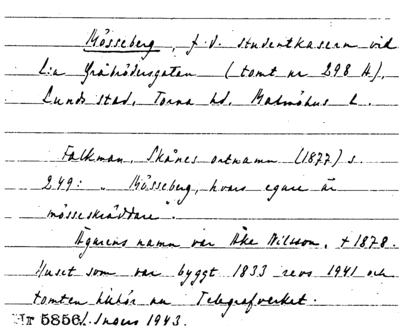 Mösseberg, f.d. studentkasern vid
L:a Gråbrödersgatan (tomt nr 298 A),
Lunds stad, Torna hd, Malmöhus l.
Falkman, Skånes ortnamn (1877) s.
249: "Mösseberg, hvars egare är
mösseskräddare".
Ägarens namn var Åke Nilsson, † 1878.
Huset som var byggt 1833 revs 1941 och
tomten tillhör nu Telegrafverket.
Nr 5856. Ingers 1943.